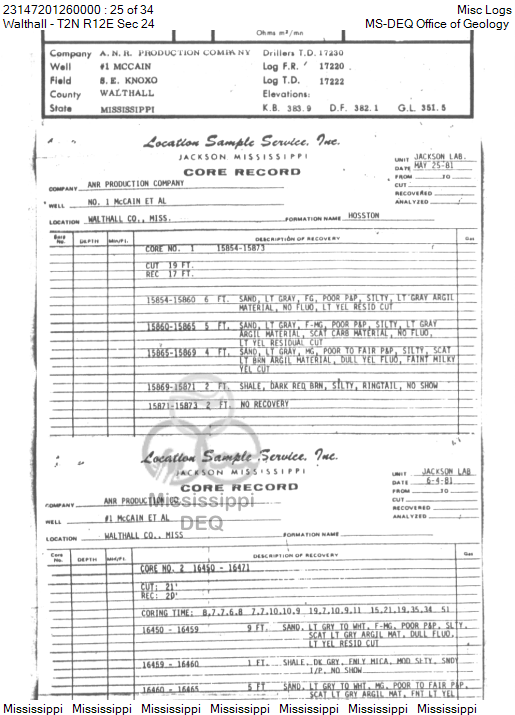 23147201260000 : 25 of 34 Misc Logs
Walthall - T2N R12E Sec 24 MS-DEQ Office of Geology
Ohms m²/mm
Company A. N. R. PRODUCTION COMPANY Drillers T.D. 17230
Well #1 MCCAIN Log F.R. 17220
Field S. E. KNOXO Log T.D. 17222
County WALTHALL Elevations:
State MISSISSIPPI K.B. 383.9 D.F. 382.1 G.L. 351.5
Location Sample Service, Inc.
JACKSON MISSISSIPPI
CORE RECORD
UNIT JACKSON LAB.
DATE MAY 25-81
FROM TO
CUT
RECOVERED
ANALYZED
COMPANY ANR PRODUCTION COMPANY
WELL NO. 1 McCAIN ET AL
LOCATION WALTHALL CO., MISS. FORMATION NAME HOSSTON
Core No. DEPTH Min/Ft. DESCRIPTION OF RECOVERY Gas
CORE NO. 1 15854-15873
CUT 19 FT.
REC 17 FT.
15854-15860 6 FT. SAND, LT GRAY, FG, POOR P&P, SILTY, LT GRAY ARGIL
MATERIAL, NO FLUO, LT YEL RESID CUT
15860-15865 5 FT. SAND, LT GRAY, F-MG, POOR P&P, SILTY, LT GRAY
ARGIL MATERIAL, SCAT CARB MATERIAL, NO FLUO,
LT YEL RESIDUAL CUT
15865-15869 4 FT. SAND, LT GRAY, MG, POOR TO FAIR P&P, SILTY, SCAT
LT BRN ARGIL MATERIAL, DULL YEL FLUO, FAINT MILKY
YEL CUT
15869-15871 2 FT. SHALE, DARK RED BRN, SILTY, RINGTAIL, NO SHOW
15871-15873 2 FT. NO RECOVERY
Location Sample Service, Inc.
JACKSON MISSISSIPPI
CORE RECORD
UNIT JACKSON LAB
DATE 6-4-81
FROM TO
CUT
RECOVERED
ANALYZED
COMPANY ANR PRODUCTION CO.
Mississippi
WELL #1 McCAIN ET AL
DEQ
LOCATION WALTHALL CO., MISS FORMATION NAME
Core No. DEPTH Min/Ft. DESCRIPTION OF RECOVERY Gas
CORE NO. 2 16450 - 16471
CUT: 21'
REC: 20'
CORING TIME: 8,7,7,6,8 7,7,10,10,9 19,7,10,9,11 15,21,19,35,34 51
16450 - 16459 9 FT. SAND, LT GRY TO WHT, F-MG, POOR P&P, SLTY,
SCAT LT GRY ARGIL MAT, DULL FLUO,
LT YEL RESID CUT
16459 - 16460 1 FT. SHALE, DK GRY, FNLY MICA, MOD SLTY, SNDY
I/P, NO SHOW
16460 - 16465 5 FT SAND, LT GRY TO WHT, MG, POOR TO FAIR P&P,
SCAT LT GRY ARGIL MAT, FNT LT YEL
Mississippi Mississippi Mississippi Mississippi Mississippi Mississippi Mississippi